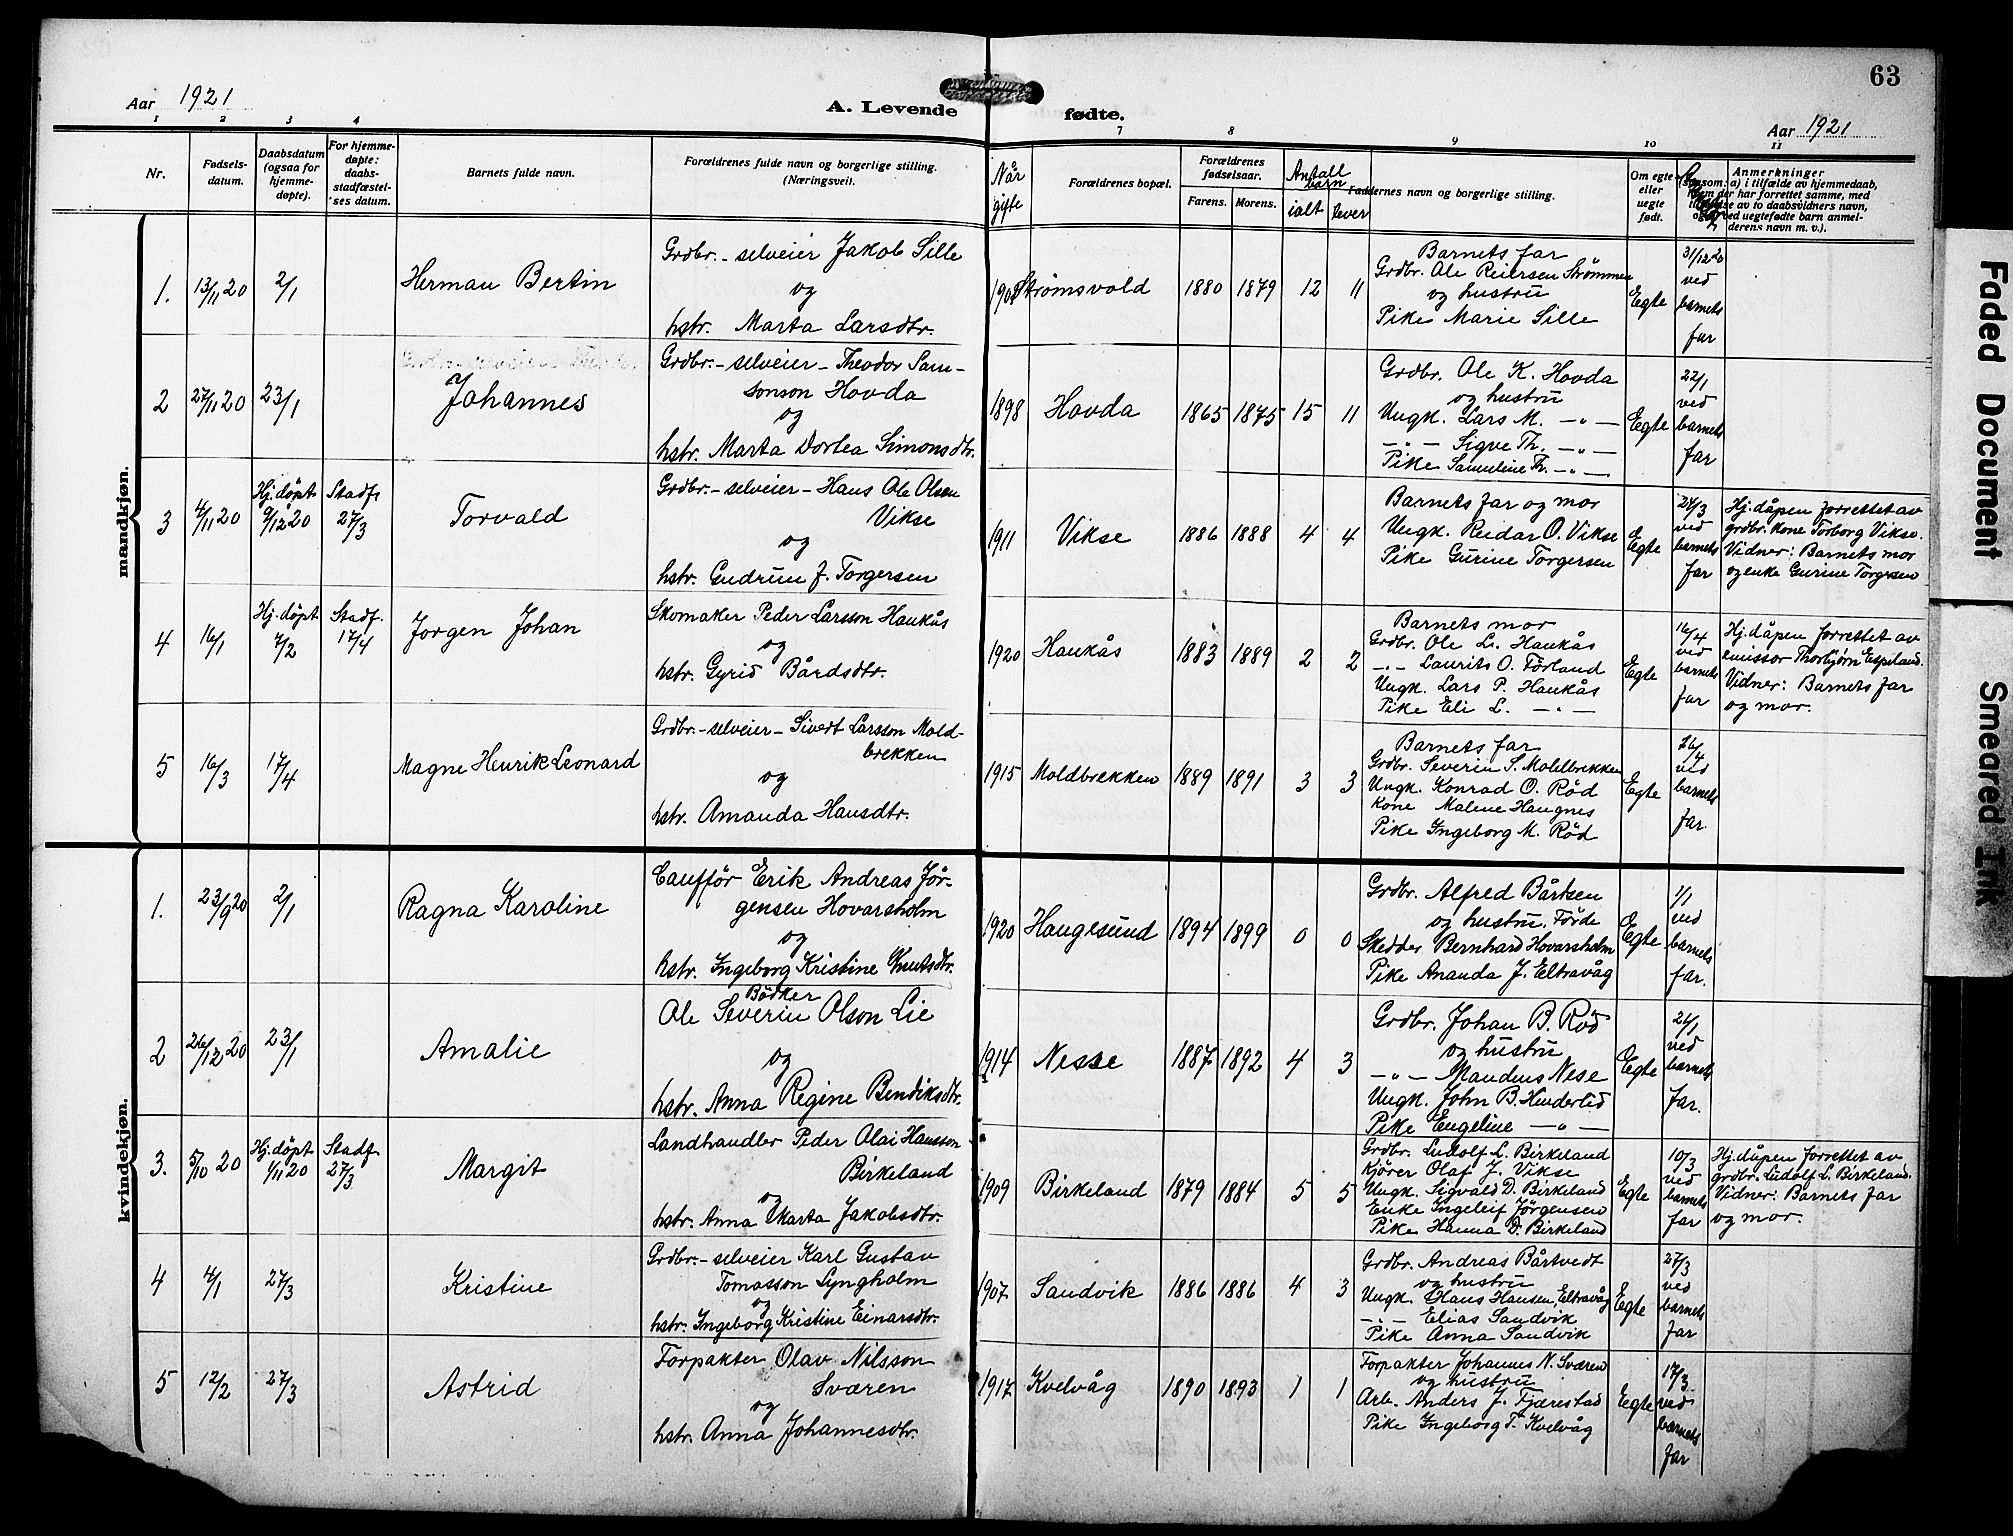 63
Aar 1921
A. Levende fødte.
Aar 1921
1 2 3 4 7 8 9 10 11
Nr.
Fødsels-
datum.
Daabsdatum
(ogsaa for
hjemme-
døpte).
For hjemme-
døpte:
daabs-
stadfæstel-
ses datum.
Barnets fulde navn.
Forældrenes fulde navn og borgerlige stilling.
(Næringsvei).
Når
gifte
Forældrenes bopæl.
Forældrenes
fødselsaar.
Farens. Morens.
Antall
barn
ialt lever
Faddernes navn og borgerlige stilling.
Om egte
eller
uegte
født.
Anmerkninger
a) i tilfælde av hjemmedaab,
der har forrettet samme, med
av to daabsvidners navn,
ved uegtefødte barn anmel-
derens navn m. v.).
mandkjøn.
1. 13/11 20 2/1
Herman Bertin
Grdbr.-selveier Jakob Sille
og
hstr. Marta Larsdtr.
Strømsvold 1880 1879 12 11
Barnets far
Grdbr. Ole Reiersen Strømmen
og hustru
Pike Marie Sille
Egte
31/12 20
ved
barnets
far
2 27/11 20 23/1
Johannes
Grdbr.-selveier-Theodor Sam-
sonson Hovda
og
hstr. Marta Dortea Simonsdtr.
1898 Hovda 1865 1875 15 11
Grdbr. Ole K. Hovda
og hustru
Ungk. Lars M. -"-
-"- Sigve Th. -"-
Pike Samuline Th. -"-
Egte
22/1
ved
barnets
far
3 4/11 20
Hj.døpt
9/12 20
Stadf.
27/3
Torvald
Grdbr.-selveier-Hans Ole Olsen
Vikse
og
hstr. Gudrun J. Torgersen
1911 Vikse 1886 1888 4 4
Barnets far og mor
Ungk. Reidar O. Vikse
Pike Gurine Torgersen
Egte
24/3
ved
barnets
far
Hj.dåpen forrettet av
grdbr. kone Torborg Vikse.
Vidner: Barnets mor
og enke Gurine Torgersen
4 16/1
Hj.døpt
7/2
Stadf.
17/4
Jorgen Johan
Skomaker Peder Larsson Haukås
og
hstr. Gyrid Bårdsdtr.
1920 Haukås 1883 1889 2 2
Barnets mor
Grdbr. Ole L. Haukås
-"- Laurits O. Førland
Ungk. Lars P. Haukås
Pike Eli L. -"-
Egte
16/4
ved
barnets
far
Hj.dåpen forrettet av
emissær Thorbjørn Espeland.
Vidner: Barnets far
og mor.
5 16/3 17/4
Magne Henrik Leonard
Grdbr.-selveier-Sivert Larsson Mold-
brekken
og
hstr. Amanda Hansdtr.
1915 Moldbrekken 1889 1891 3 3
Barnets far
Grdbr. Severin S. Moldbrekken
Ungk. Konrad O. Rød
Kone Malene Haugnes
Pike Ingeborg M. Rød
Egte
16/4
ved
barnets
far.
kvindekjøn.
1. 23/9 20 2/1
Ragna Karoline
Cauffør Erik Andreas Jør-
gensen Hovarsholm
og
hstr. Ingeborg Kristine Knutsdtr.
1920 Haugesund 1894 1899 0 0
Grdbr. Alfred Bårtsen
og hustru. Førde
Skedder Bernhard Hovarsholm
Pike Ananda J. Eltravåg
Egte
1/1
ved
barnets
far.
2 26/12 20 23/1
Amalie
Bødker
Ole Severin Olson Lie
og
hstr. Anna Regine Bendiksdtr.
1914 Nesse 1887 1892 4 3
Grdbr. Johan B. Rød
og hustru
-"- Maudens Nese
Ungk. John B. Hinderlid
Pike Engeline -"-
Egte
21/1
ved
barnets
far.
3. 5/10 20
Hj.døpt
1/11 20
Stadf.
27/3
Margit
Landhandler Peder Olai Hansson
Birkeland
og
hstr. Anna Marta Jakobsdtr.
1909 Birkeland 1879 1884 5 5
Grdbr. Ludolf L. Birkeland
Kjører Olaf J. Vikse
Ungk. Sigvald D. Birkeland
Enke Ingeleif Jørgensen
Pike Hanna D. Birkeland
Egte
10/3
ved
barnets
far
Hj.dåpen forrettet av
grdbr. Ludolf L. Birkeland.
Vidner: Barnets far
og mor.
4 4/1 27/3
Kristine
Grdbr.-selveier Karl Gustav
Tomasson Lyngholm
og
hstr. Ingeborg Kristine Einarsdtr.
1907 Sandvik 1886 1886 4 3
Grdbr. Andreas Bårtvedt
og hustru
Ungk. Hans Hansen Eltravåg
-"- Elias Sandvik
Pike Anna Sandvik
Egte
27/3
ved
barnets
far
5 12/2 27/3
Astrid
Forpakter Olav Nilsson
Sværen
og
hstr. Anna Johannesdtr.
1917 Kvelvåg 1890 1893 1 1
Forpakter Johannes N. Sværen
og hustru
Arb. Anders J. Fjærestad
Pike Ingeborg T. Kvelvåg
Egte
17/3
ved
barnets
far
Faded Document
Smeared Ink